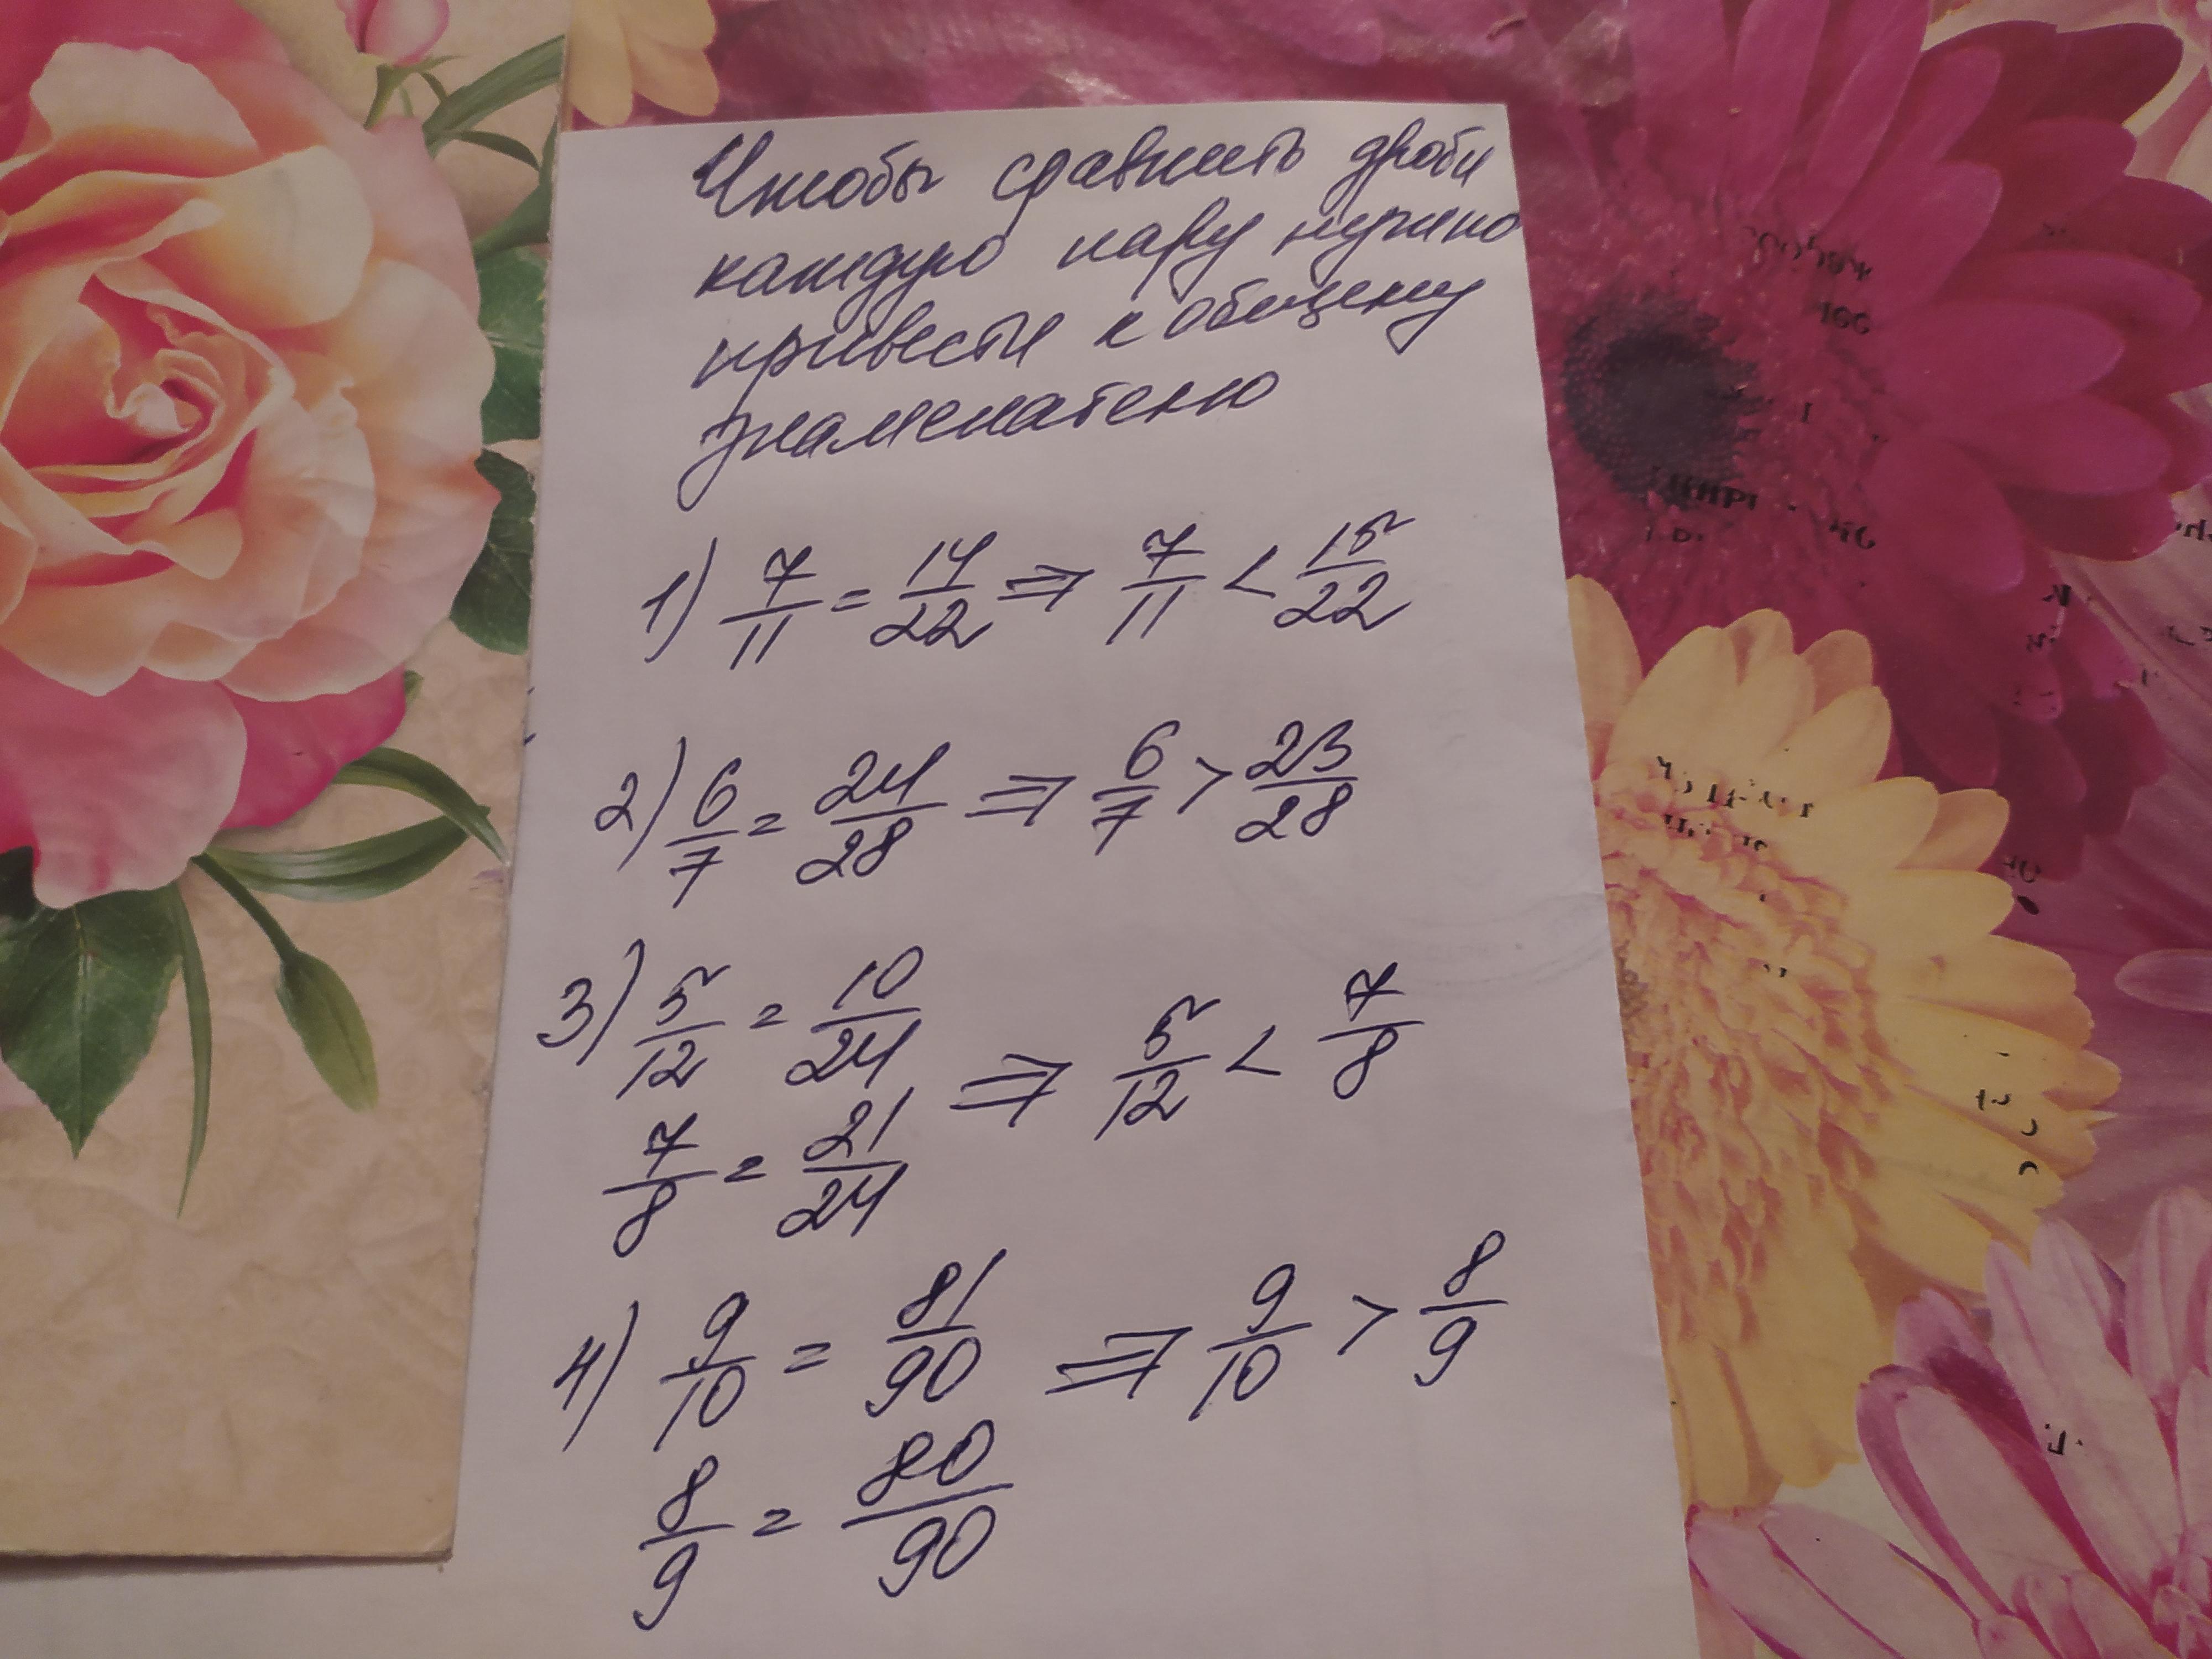 Чтобы сравнить дроби
каждую пару нужно
привести к общему
знаменателю
1) 7/11 = 14/22 ⇒ 7/11 < 15/22
2) 6/7 = 24/28 ⇒ 6/7 > 23/28
3) 5/12 = 10/24
7/8 = 21/24 ⇒ 5/12 < 7/8
4) 9/10 = 81/90 ⇒ 9/10 > 8/9
8/9 = 80/90